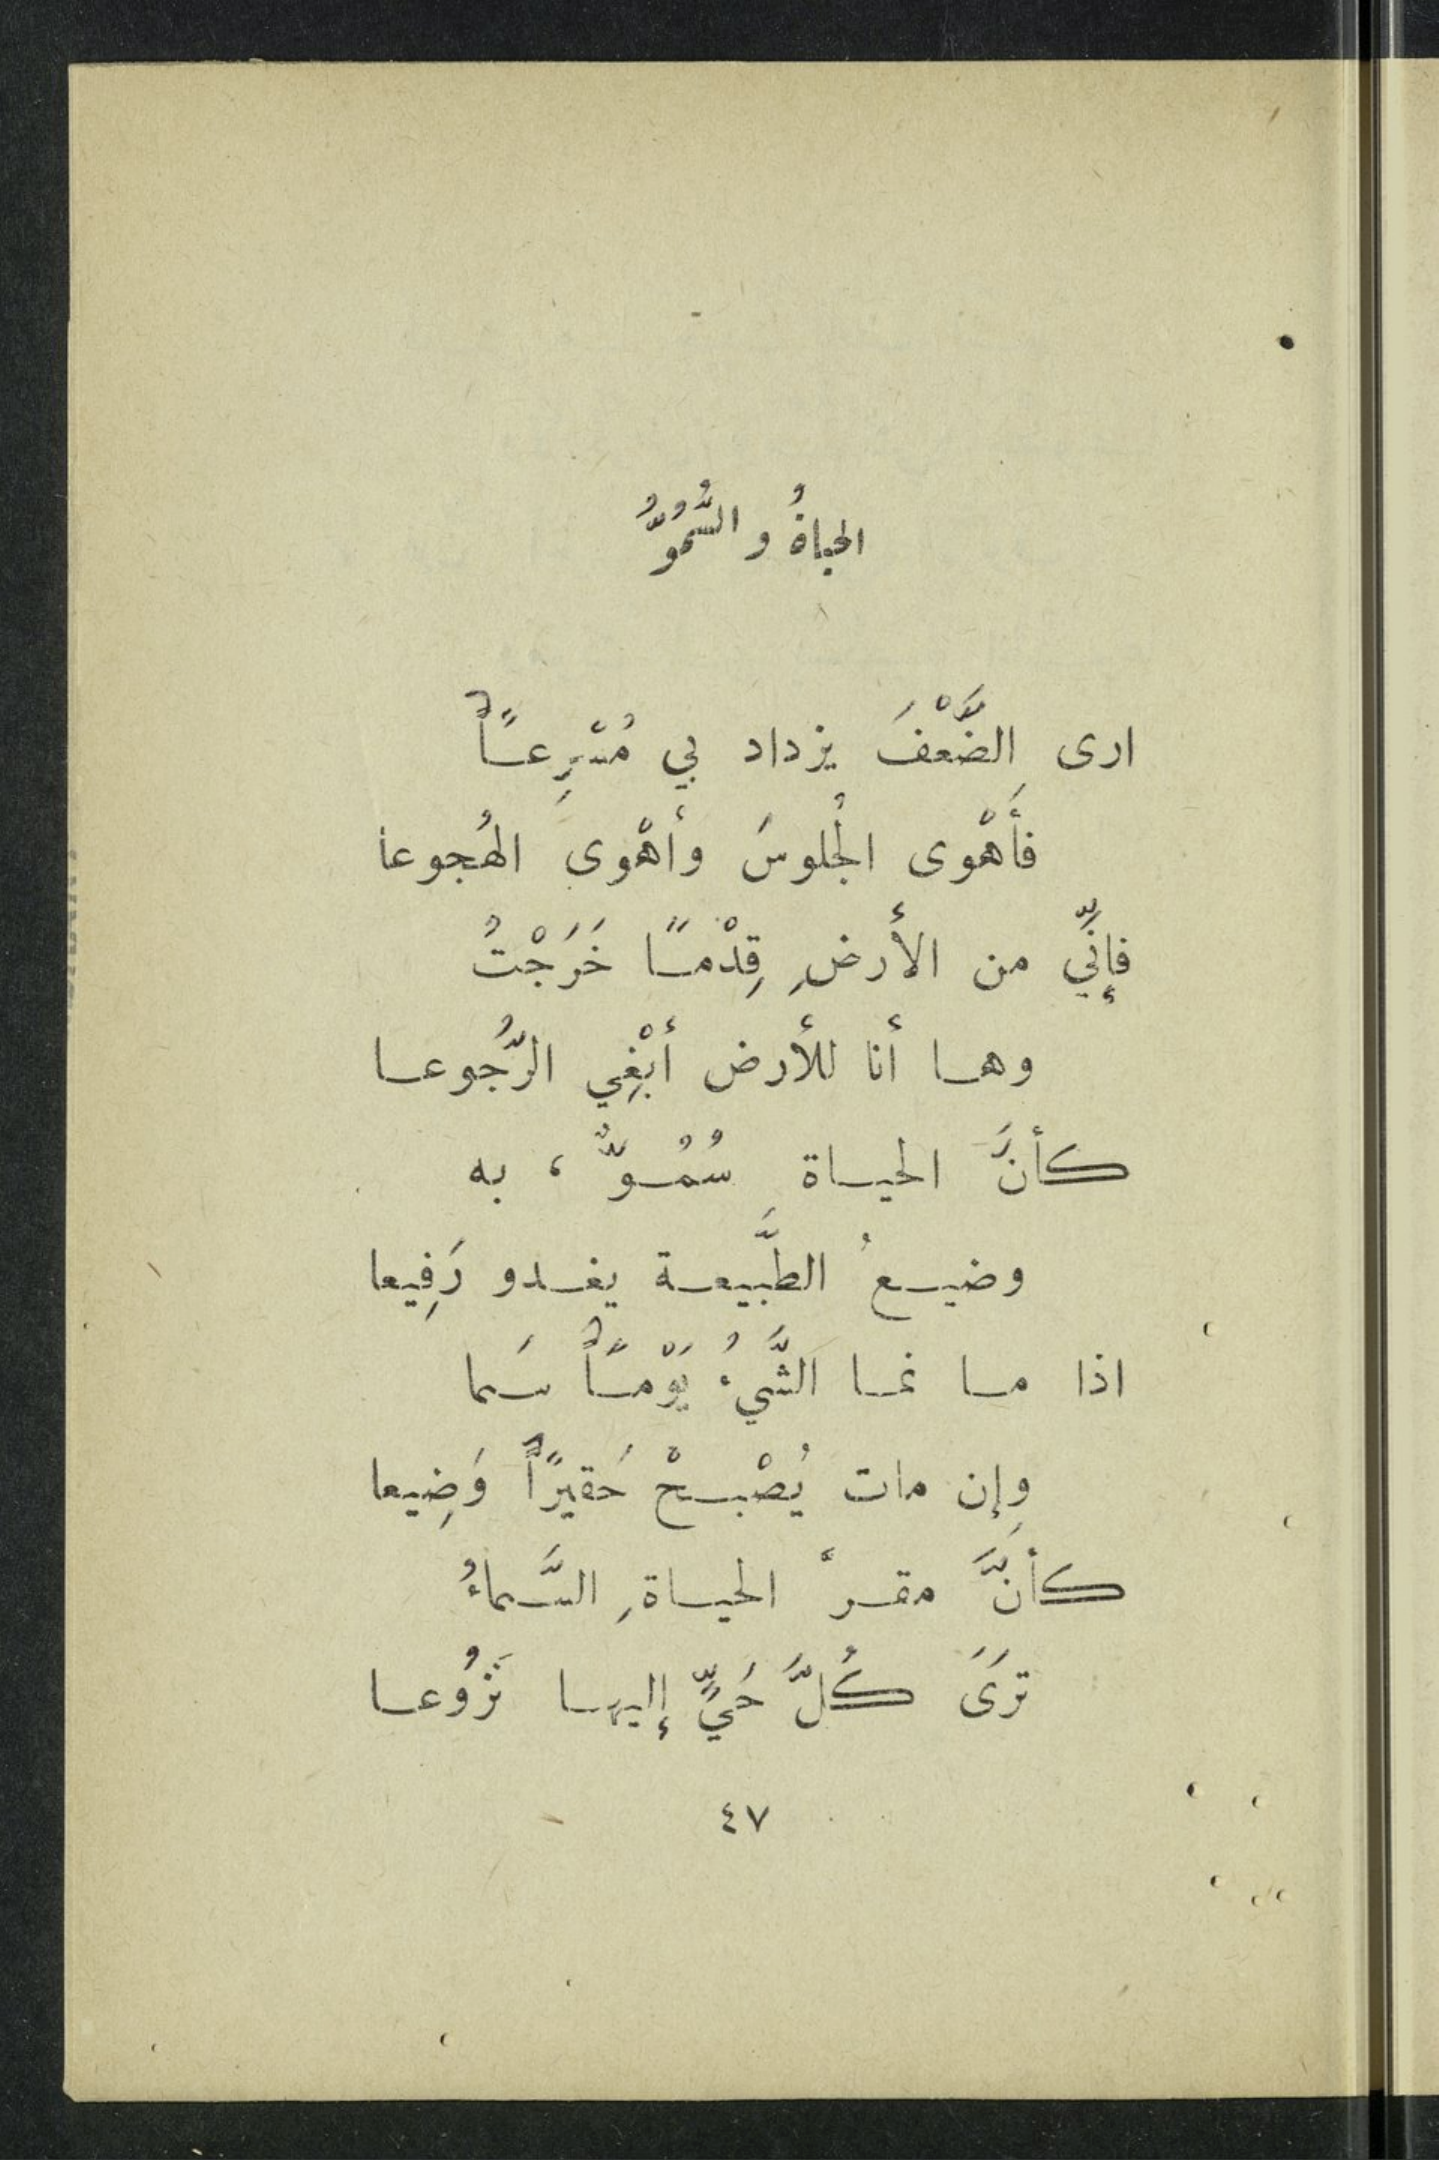 الحياةُ و السُّمُوُّ
ارى الضَّعْفَ يزداد بي مُسْرِعاً
فأَهْوى الجُلوسَ وأهْوى الهُجوعا
فإنِّي من الأرضِ قِدْمًا خَرَجْتُ
وها أنا للأرض أبْغِي الرُّجوعا
كأنَّ الحياة سُمُوٌّ ، به
وضيعُ الطَّبيعة يغدو رَفِيعا
اذا ما نما الشَّيءُ يَوْماً سَما
وإن مات يُصْبحْ حَقيرًا وَضِيعا
كأنَّ مقرَّ الحياةِ السَّماءُ
ترَىَ كُلَّ حَيٍّ إليها نَزُوعا
٤٧